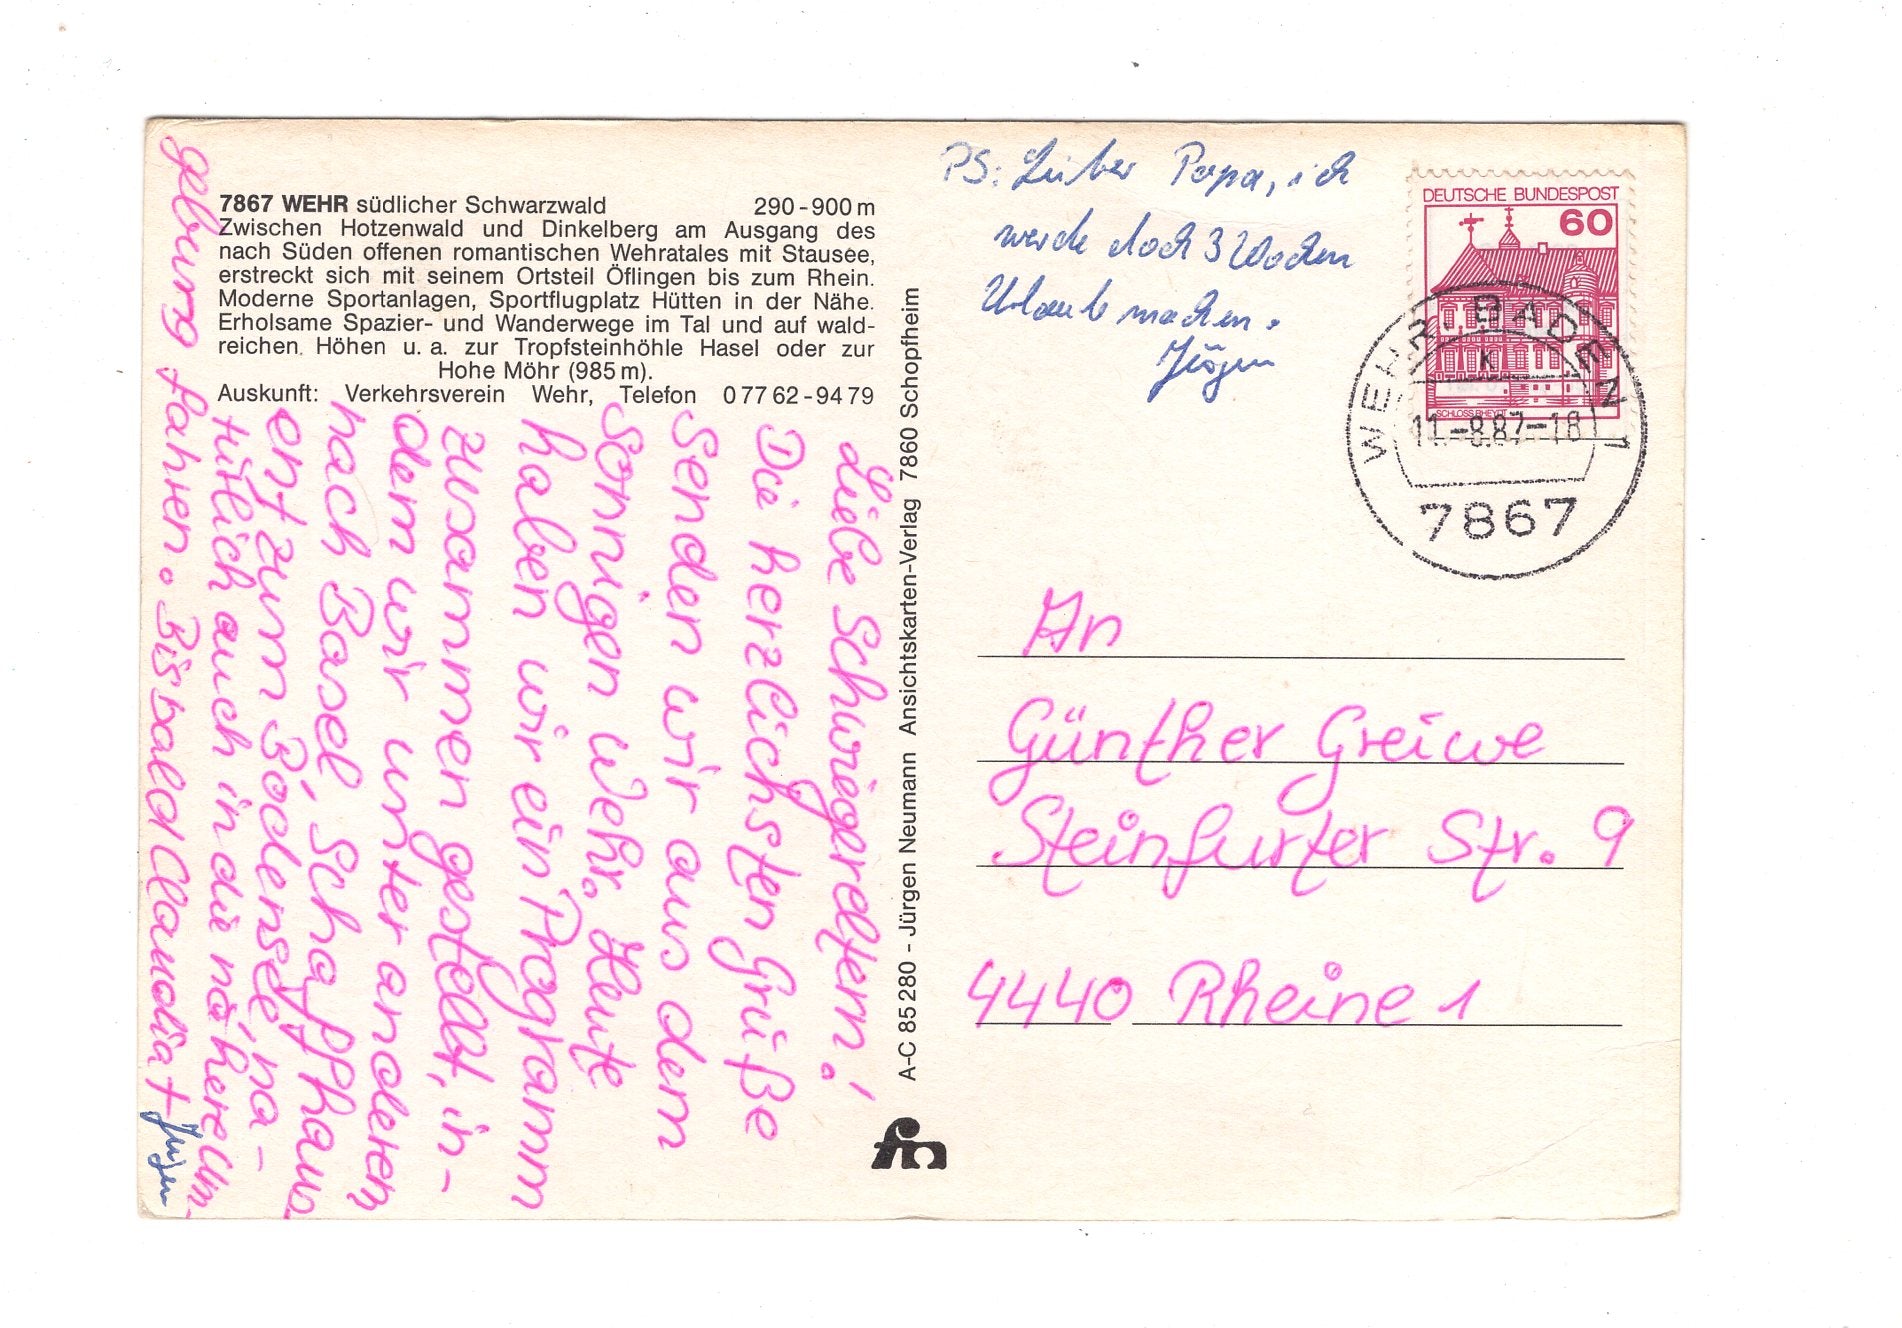 7867 WEHR südlicher Schwarzwald 290-900 m
Zwischen Hotzenwald und Dinkelberg am Ausgang des
nach Süden offenen romantischen Wehratales mit Stausee,
erstreckt sich mit seinem Ortsteil Öflingen bis zum Rhein.
Moderne Sportanlagen, Sportflugplatz Hütten in der Nähe.
Erholsame Spazier- und Wanderwege im Tal und auf wald-
reichen Höhen u. a. zur Tropfsteinhöhle Hasel oder zur
Hohe Möhr (985 m).
Auskunft: Verkehrsverein Wehr, Telefon 0 77 62 - 94 79
Liebe Schwiegereltern!
Die herzlichsten Grüße
senden wir aus dem
sonnigen Wehr. Heute
haben wir ein Programm
zusammen gestellt, in-
dem wir unter anderem
nach Basel, Schaffhaus
ent zum Bodensee, na-
türlich auch in die nähere Um-
gebung fahren. Bis bald Claudia +
Jürgen
A-C 85 280 - Jürgen Neumann Ansichtskarten-Verlag 7860 Schopfheim
PS: Lieber Papa, ich
werde doch 3 Wochen
Urlaub machen.
Jürgen
DEUTSCHE BUNDESPOST
60
SCHLOSS RHEYDT
WEHR, BADEN 1
K
11.-8.87-18
7867
An
Günther Greiwe
Steinfurter Str. 9
4440 Rheine 1